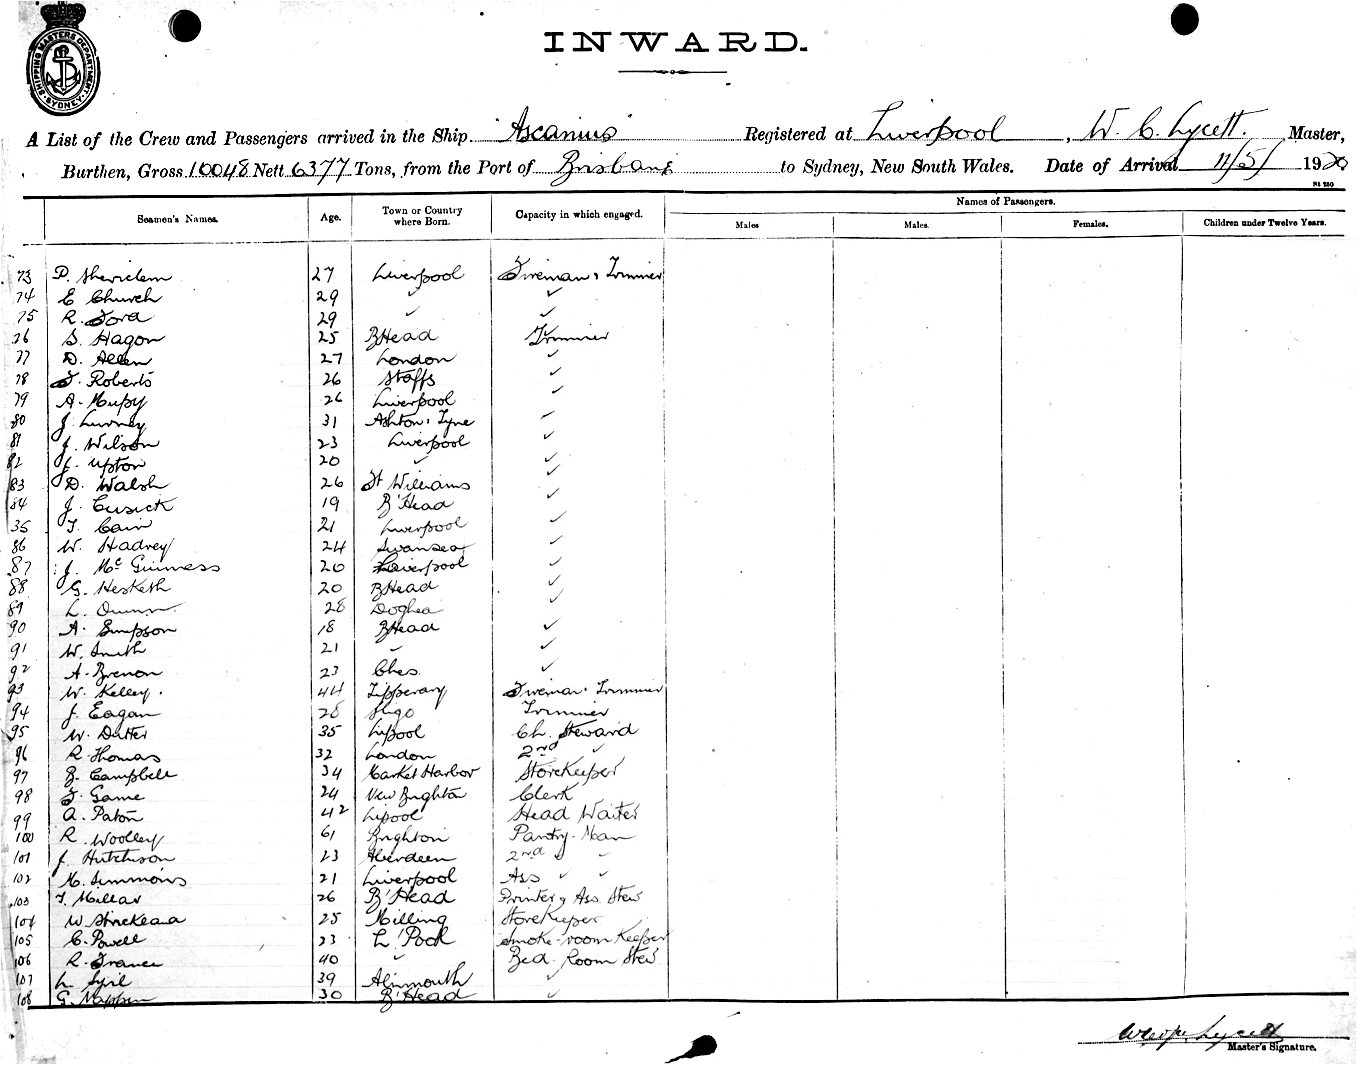 SHIPPING MASTERS DEPARTMENT
SYDNEY
INWARD.
A List of the Crew and Passengers arrived in the Ship "Ascanius" Registered at Liverpool, W. C. Lycett. Master,
Burthen, Gross 10048 Nett 6377 Tons, from the Port of Brisbane to Sydney, New South Wales. Date of Arrival 11/5/1920
Names of Passengers.
Seamen's Names. Age. Town or Country where Born. Capacity in which engaged. Males Males. Females. Children under Twelve Years.
73 P. 27 Liverpool Fireman & Trimmer
74 E Church 29 ✓ ✓
75 R. Ford 29 ✓ ✓
76 S. Hagon 25 B'Head Trimmer
77 D. Allen 27 London ✓
78 F. Roberts 26 Staffs ✓
79 A. 26 Liverpool ✓
80 J. 31 Ashton, Tyne ✓
81 J. Wilson 23 Liverpool ✓
82 J. Upton 20 ✓ ✓
83 D. Walsh 26 St Williams ✓
84 J. Cusick 19 B'Head ✓
85 T. Cain 21 Liverpool ✓
86 W. Hadvey 24 Swansea ✓
87 J. McGuinness 20 Liverpool ✓
88 G. Hesketh 20 B'Head ✓
89 L. Quinn 28 ✓
90 A. Simpson 18 B'Head ✓
91 W. Smith 21 ✓ ✓
92 A. Brenon 23 Ches. ✓
93 W. Kelley. 44 Tipperary Fireman. Trimmer
94 J. Eagan 28 Sligo Trimmer
95 W. 35 L'pool Ch. Steward
96 R. Thomas 32 London 2nd ✓
97 B. Campbell 34 Market Harbor Storekeeper
98 F. Game 24 New Brighton Clerk
99 A. Paton 42 L'pool Head Waiter
100 R. Woolley 61 Brighton Pantry-Man
101 J. Hutchison 23 Aberdeen 2nd ✓ ✓
102 M. Simmons 21 Liverpool Ass ✓ ✓
103 T. Millar 26 B'Head Printer & Ass. Stew
104 W 25 Milling Storekeeper
105 C. Powell 23 L'Pool Smoke-room Keeper
106 R. France 40 ✓ Bed. Room Stew
107 L. 39 Alnmouth ✓
108 G. 30 B'Head ✓
Lycett
Master's Signature.